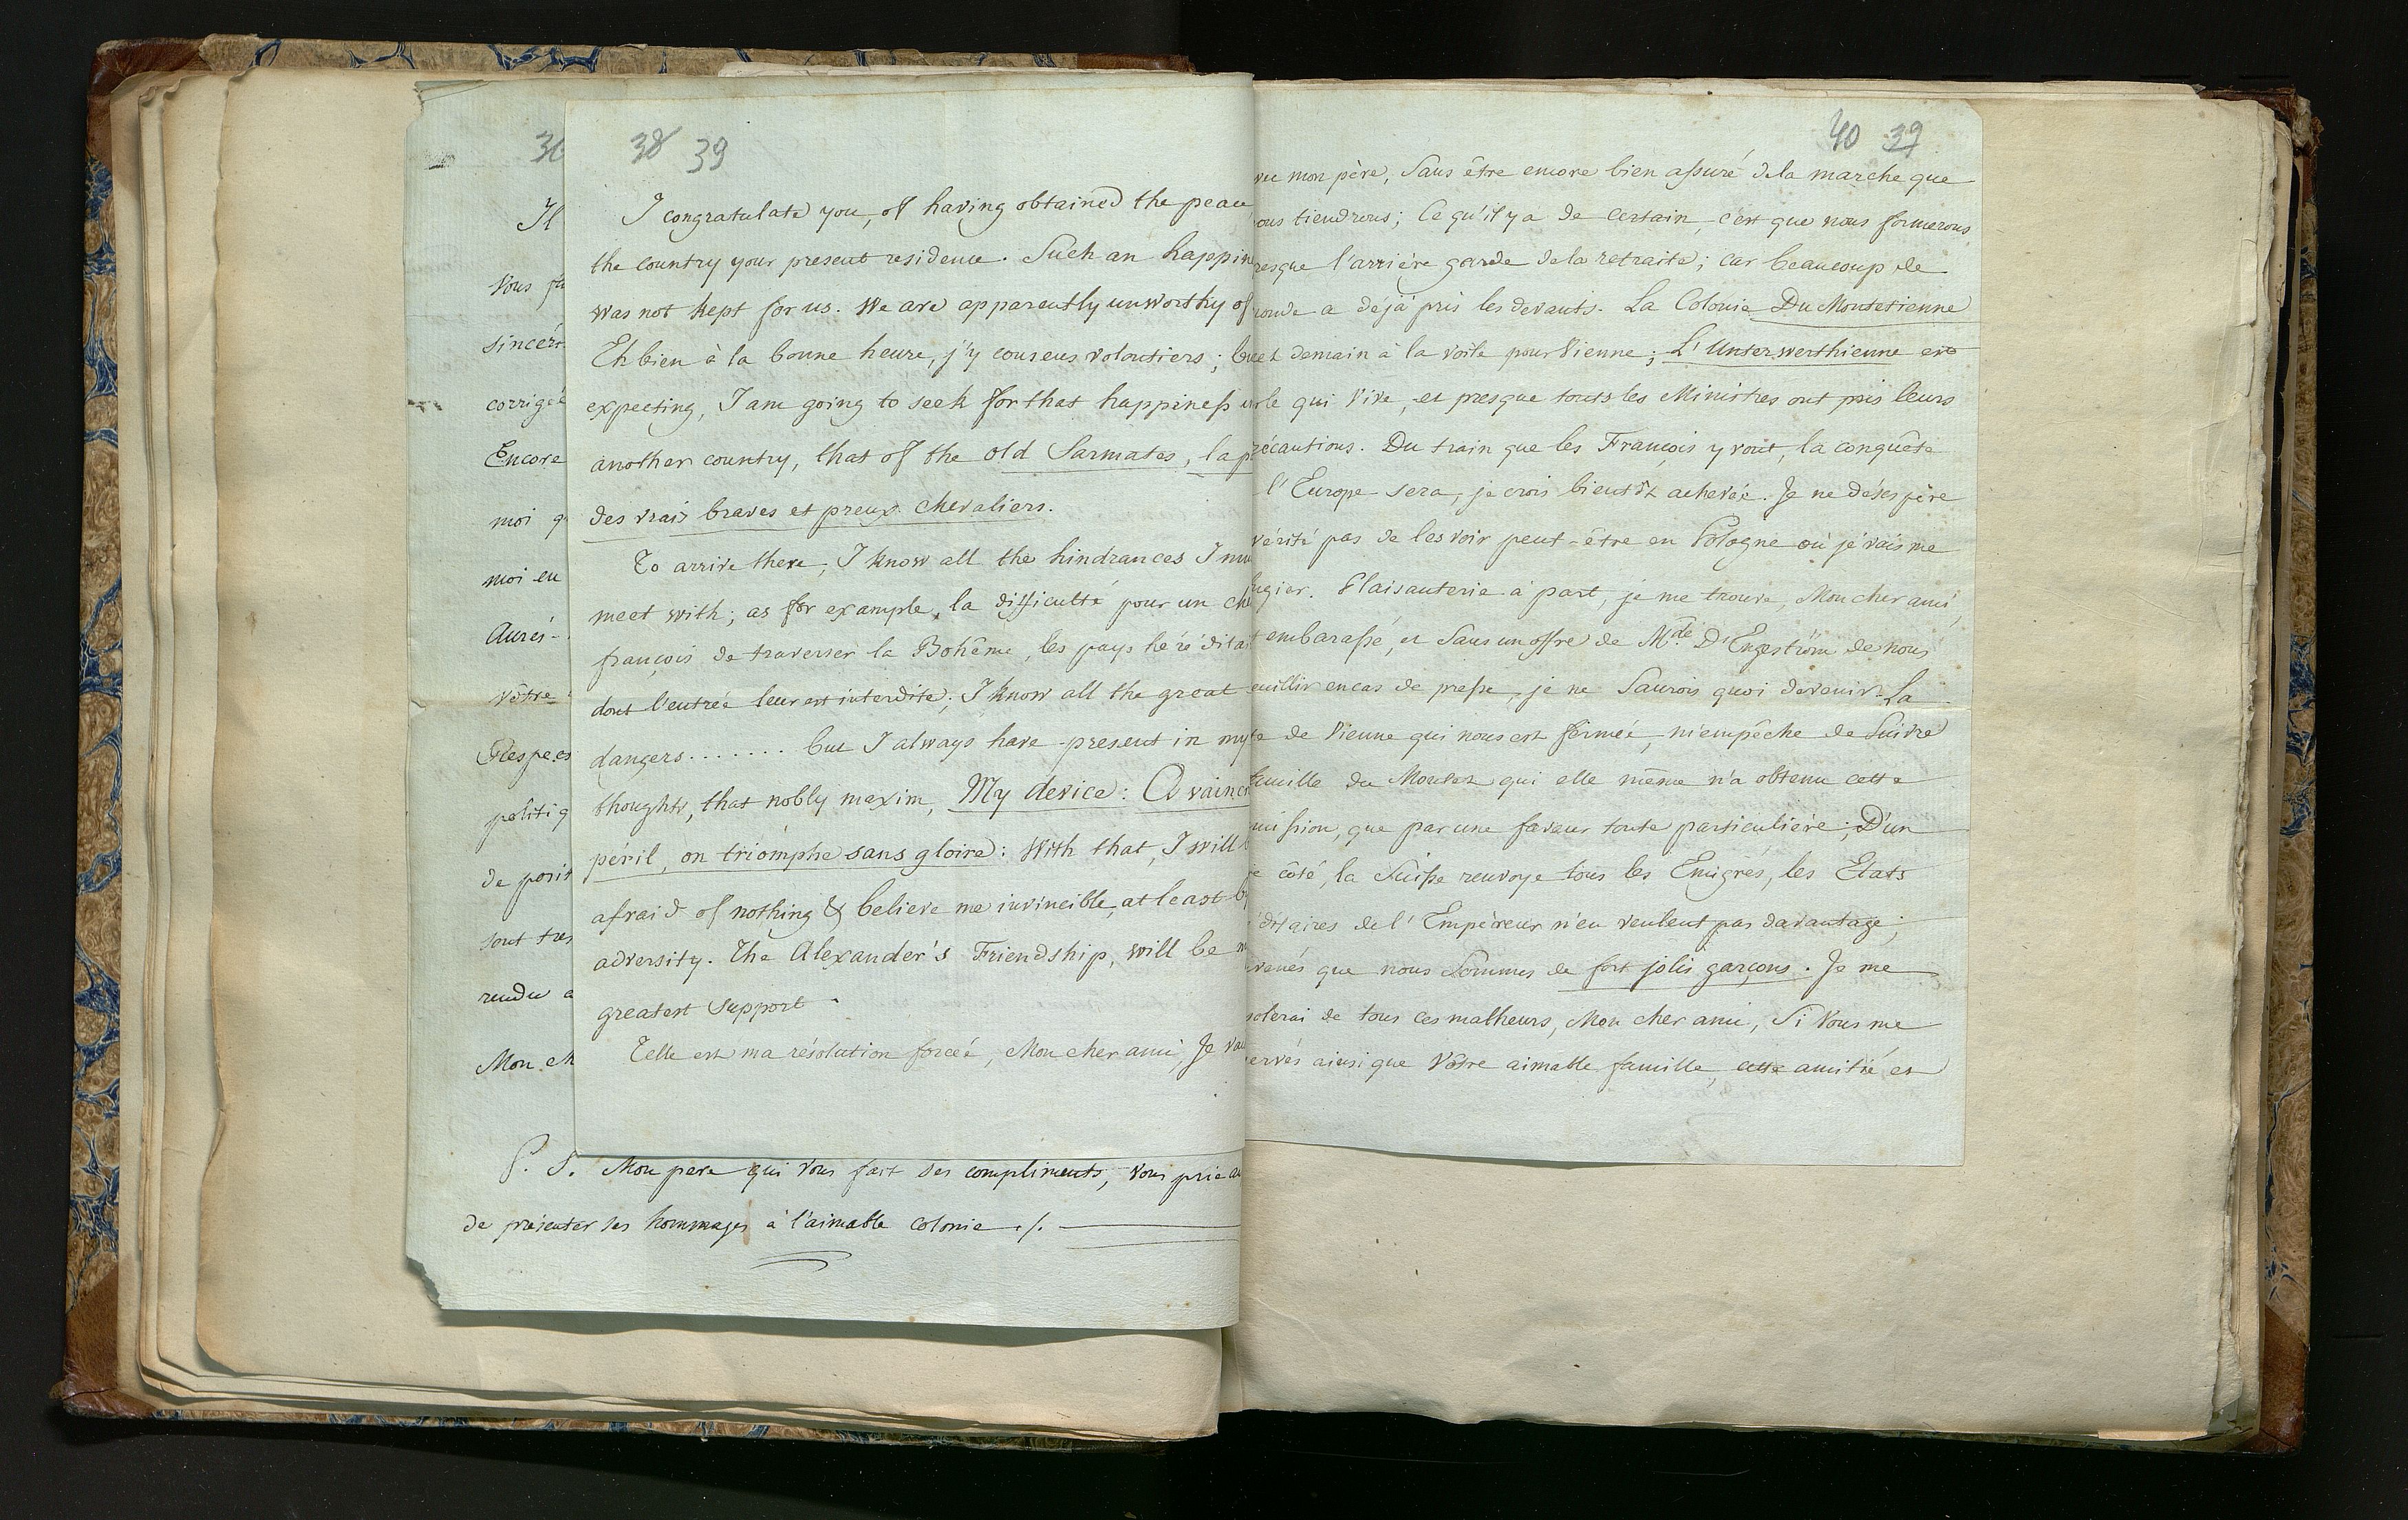 38 39
I congratulate you, of having obtained the peace
the country your present residence. Such an happin
was not kept for us. We are apparently unworthy of
Eh bien à la bonne heure, j'y consens volontiers; bu
expecting, I am going to seek for that happiness
another country, that of the old Sarmates, la p
des vrais braves et preux chevaliers.
To arrive there, I know all the hindrances I mu
meet with; as for example, la difficulté pour un che
françois de traverser la Bohême, les pays héréditai
dont l'entrée leur est interdite; I know all the great
dangers....... but I always have present in my
thoughts, that nobly maxim, My device: A vaincr
péril, on triomphe sans gloire: With that, I will b
afraid of nothing & believe me invincible, at least by
adversity. The Alexander's Friendship, will be m
greatest Support.
Telle est ma résolution forcée, Mon cher ami, Je vai
36
Il
Vous fa
sincér
corrigé
Encore
moi q
moi en
Aurés-
Vôtre
Respe.es
politiq
de posit
sont tres
rendu a
Mon ch
P. S. Mon pere qui vous fait ses compliments, vous prie au
de présenter ses hommages à l'aimable colonie ./.
40 39
vec mon père, Sans être encore bien assuré de la marche que
ous tiendrons; Ce qu'il y a de certain, c'est que nous formerons
resque l'arrière garde de la retraite; car beaucoup de
onde a déjà pris les devants. La Colonie Du Moutetienne
et demain à la voile pour Vienne; L'Unterwerthienne est
r le qui Vive, et presque touts les Ministres ont pris leurs
récautions. Du train que les François y vont, la conquête
l'Europe sera, je crois bientôt achevée. Je ne désespère
vérité pas de les voir peut-être en Pologne où je vais me
fugier. Plaisanterie à part, je me trouve, Mon cher ami,
t embarassé, et Sans un offre de Mde D'Engeström de nous
euillir en cas de presse, je ne Saurois quoi devenir. La
te de Vienne qui nous est fermée, m'empêche de Suivre
famille du Moutet qui elle même n'a obtenu cette
mission, que par une faveur toute particulière; D'un
e côté, la Suisse renvoye tous les Emigrés, les Etats
éditaires de l'Empereur n'en veulent pas davantage;
venés que nous Sommes de fort jolis garçons. Je me
solerai de tous ces malheurs, Mon cher ami, Si Vous me
ervés ainsi que Vôtre aimable famille, cette amitié et